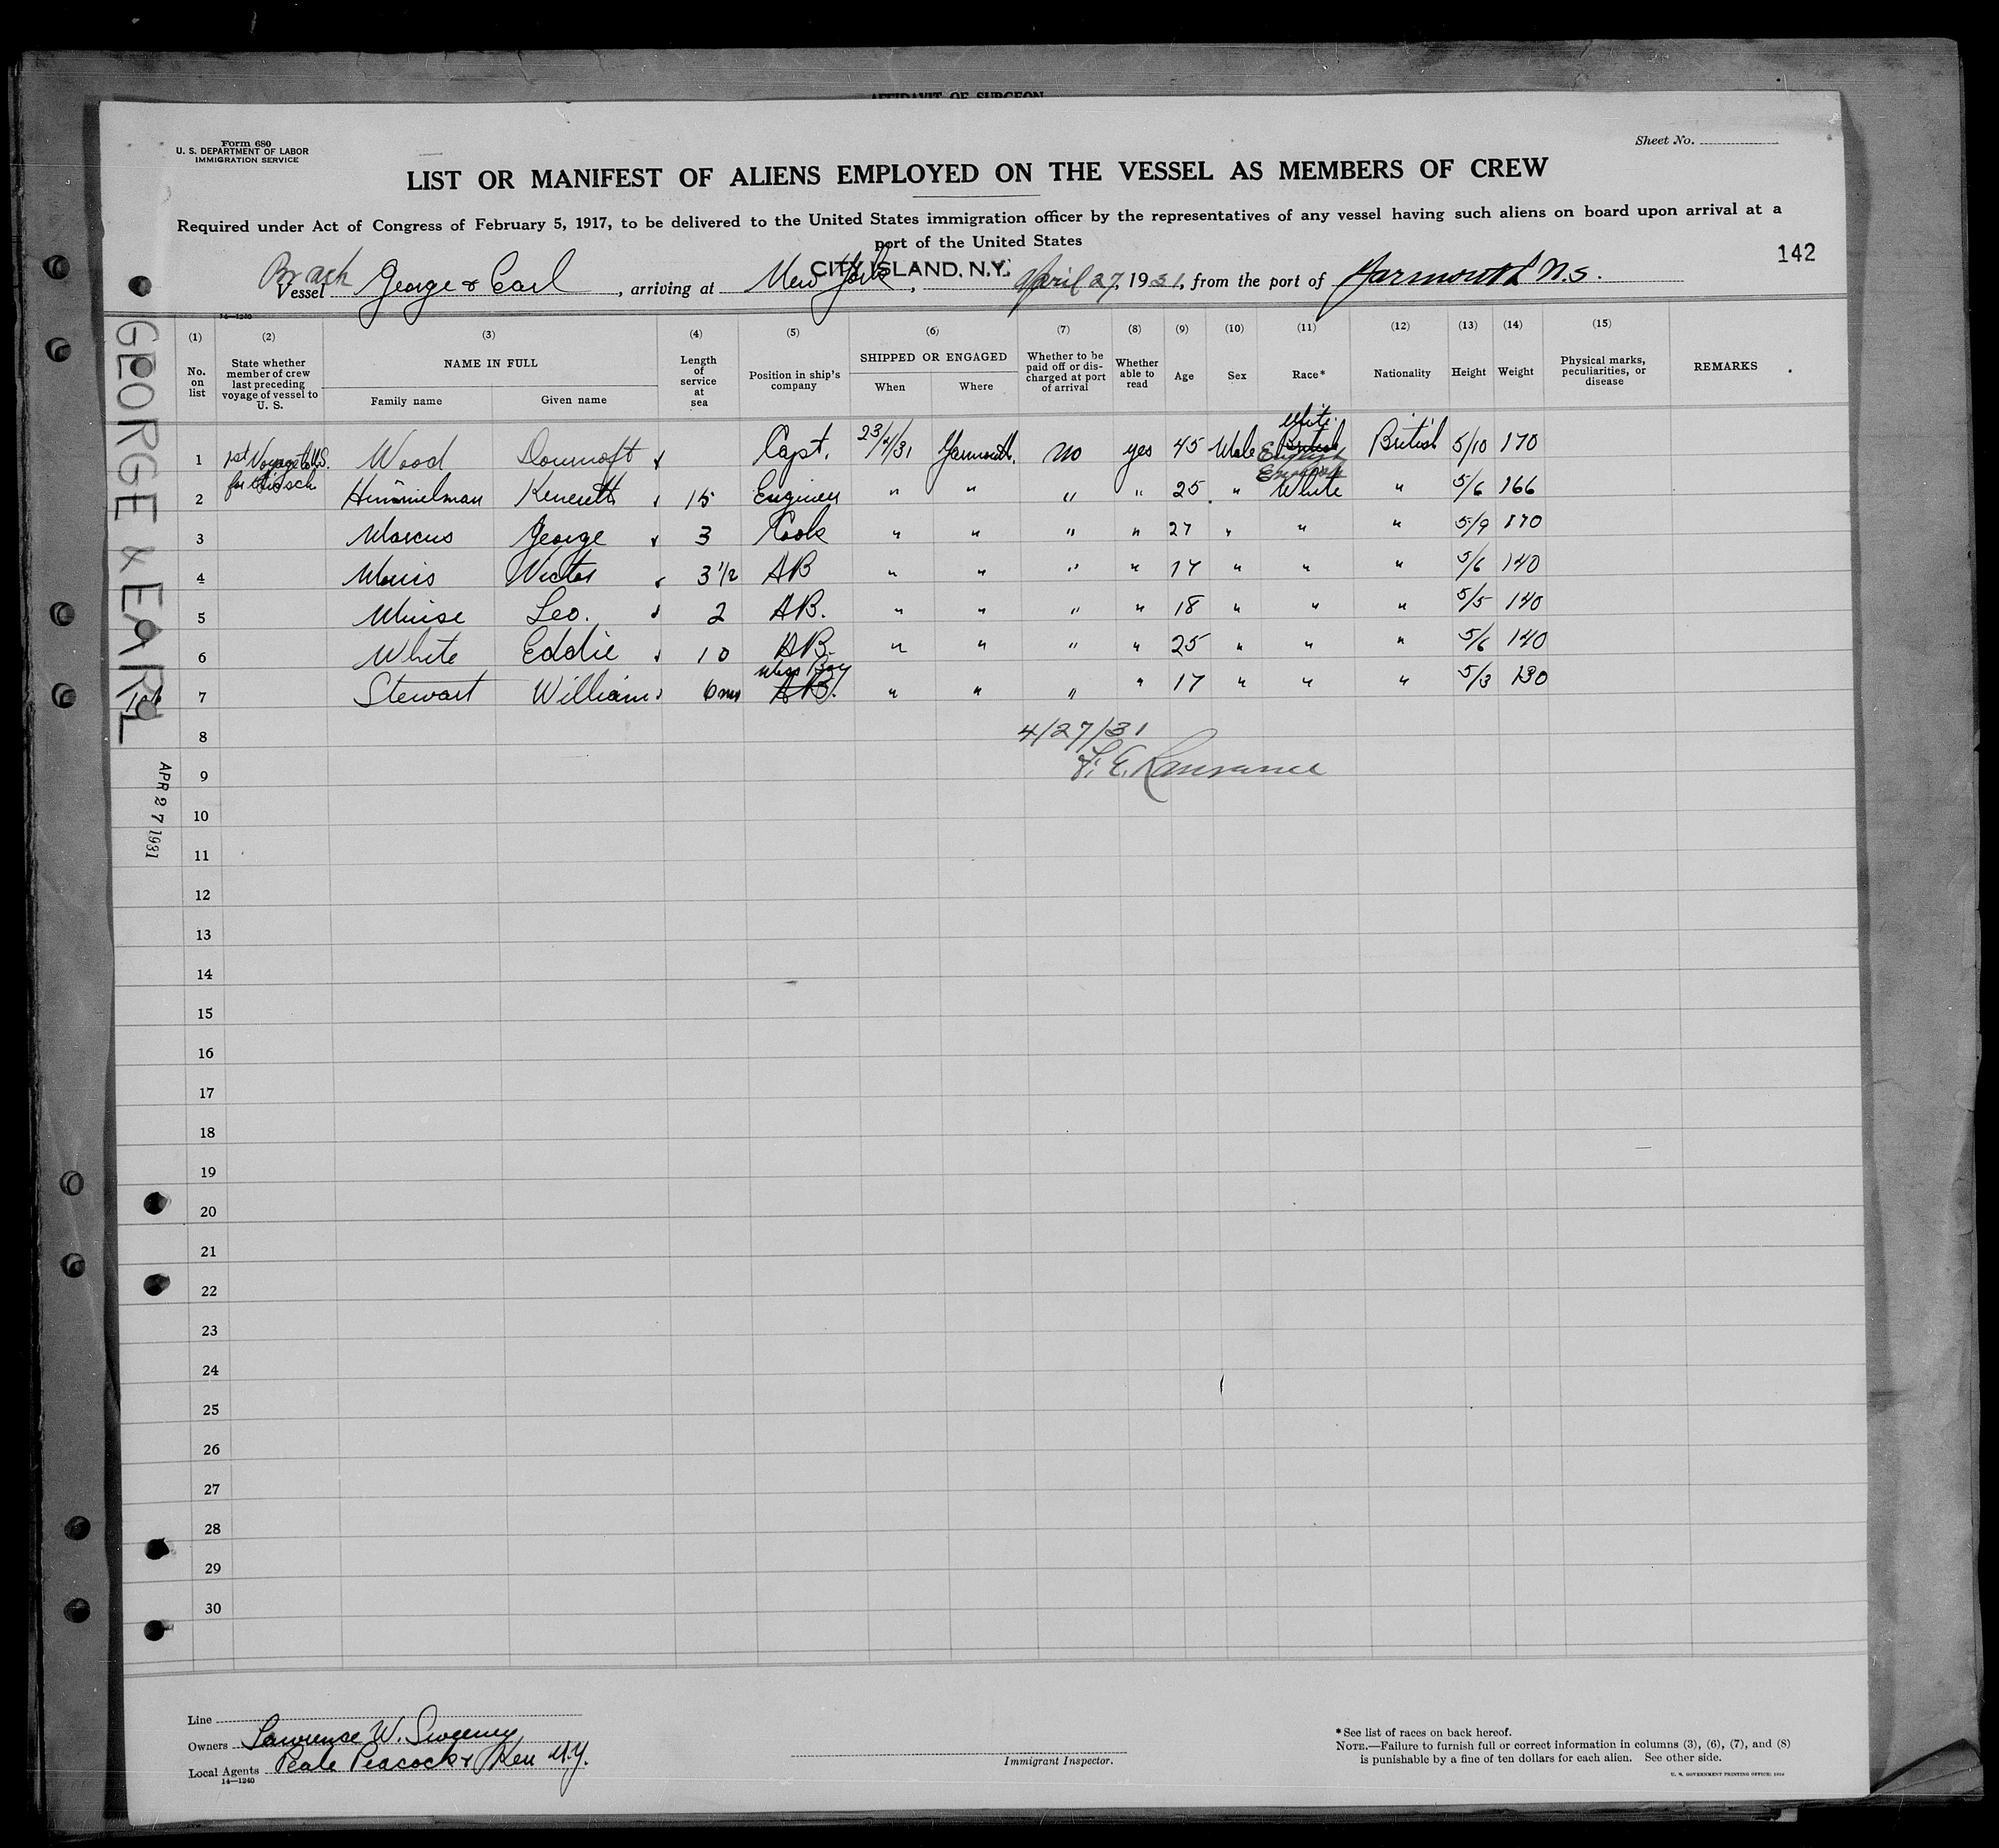 AFFIDAVIT OF SURGEON
Form 680
U. S. DEPARTMENT OF LABOR
IMMIGRATION SERVICE
Sheet No.
LIST OR MANIFEST OF ALIENS EMPLOYED ON THE VESSEL AS MEMBERS OF CREW
Required under Act of Congress of February 5, 1917, to be delivered to the United States immigration officer by the representatives of any vessel having such aliens on board upon arrival at a
port of the United States
142
CITY ISLAND, N.Y.
Vessel George & Earl, arriving at New York, April 27, 1931, from the port of Yarmouth N.S.
14—1240
(1) (2) (3) (4) (5) (6) (7) (8) (9) (10) (11) (12) (13) (14) (15)
No. on list
State whether member of crew last preceding voyage of vessel to U. S.
NAME IN FULL
Family name
Given name
Length of service at sea
Position in ship's company
SHIPPED OR ENGAGED
When
Where
Whether to be paid off or discharged at port of arrival
Whether able to read
Age
Sex
Race*
Nationality
Height
Weight
Physical marks, peculiarities, or disease
REMARKS
White
1 1st Voyage to U.S. Wood Capt. 23/4/31 Yarmouth. no yes 45 Male British English British 5/10 170
for this sch
English
2 Himmelman Kenneth 15 Engineer " " " " 25 " White " 5/6 166
3 Marcus George 3 Cook " " " " 27 " " " 5/9 170
4 Victor 3½ AB " " " " 17 " " " 5/6 140
5 Muise Leo. 2 AB. " " " " 18 " " " 5/5 140
6 White Eddie 10 AB. " " " " 25 " " " 5/6 140
Mess Boy
7 Stewart William 6 ms AB. " " " " 17 " " " 5/3 130
8 4/27/31
9 F. E.
10
11
12
13
14
15
16
17
18
19
20
21
22
23
24
25
26
27
28
29
30
GEORGE & EARL
APR 27 1931
Line
Owners Lawrence W. Sweeney
Local Agents Peale Peacock & Kerr N.Y.
14—1240
Immigrant Inspector.
*See list of races on back hereof.
NOTE.—Failure to furnish full or correct information in columns (3), (6), (7), and (8)
is punishable by a fine of ten dollars for each alien. See other side.
U. S. GOVERNMENT PRINTING OFFICE: